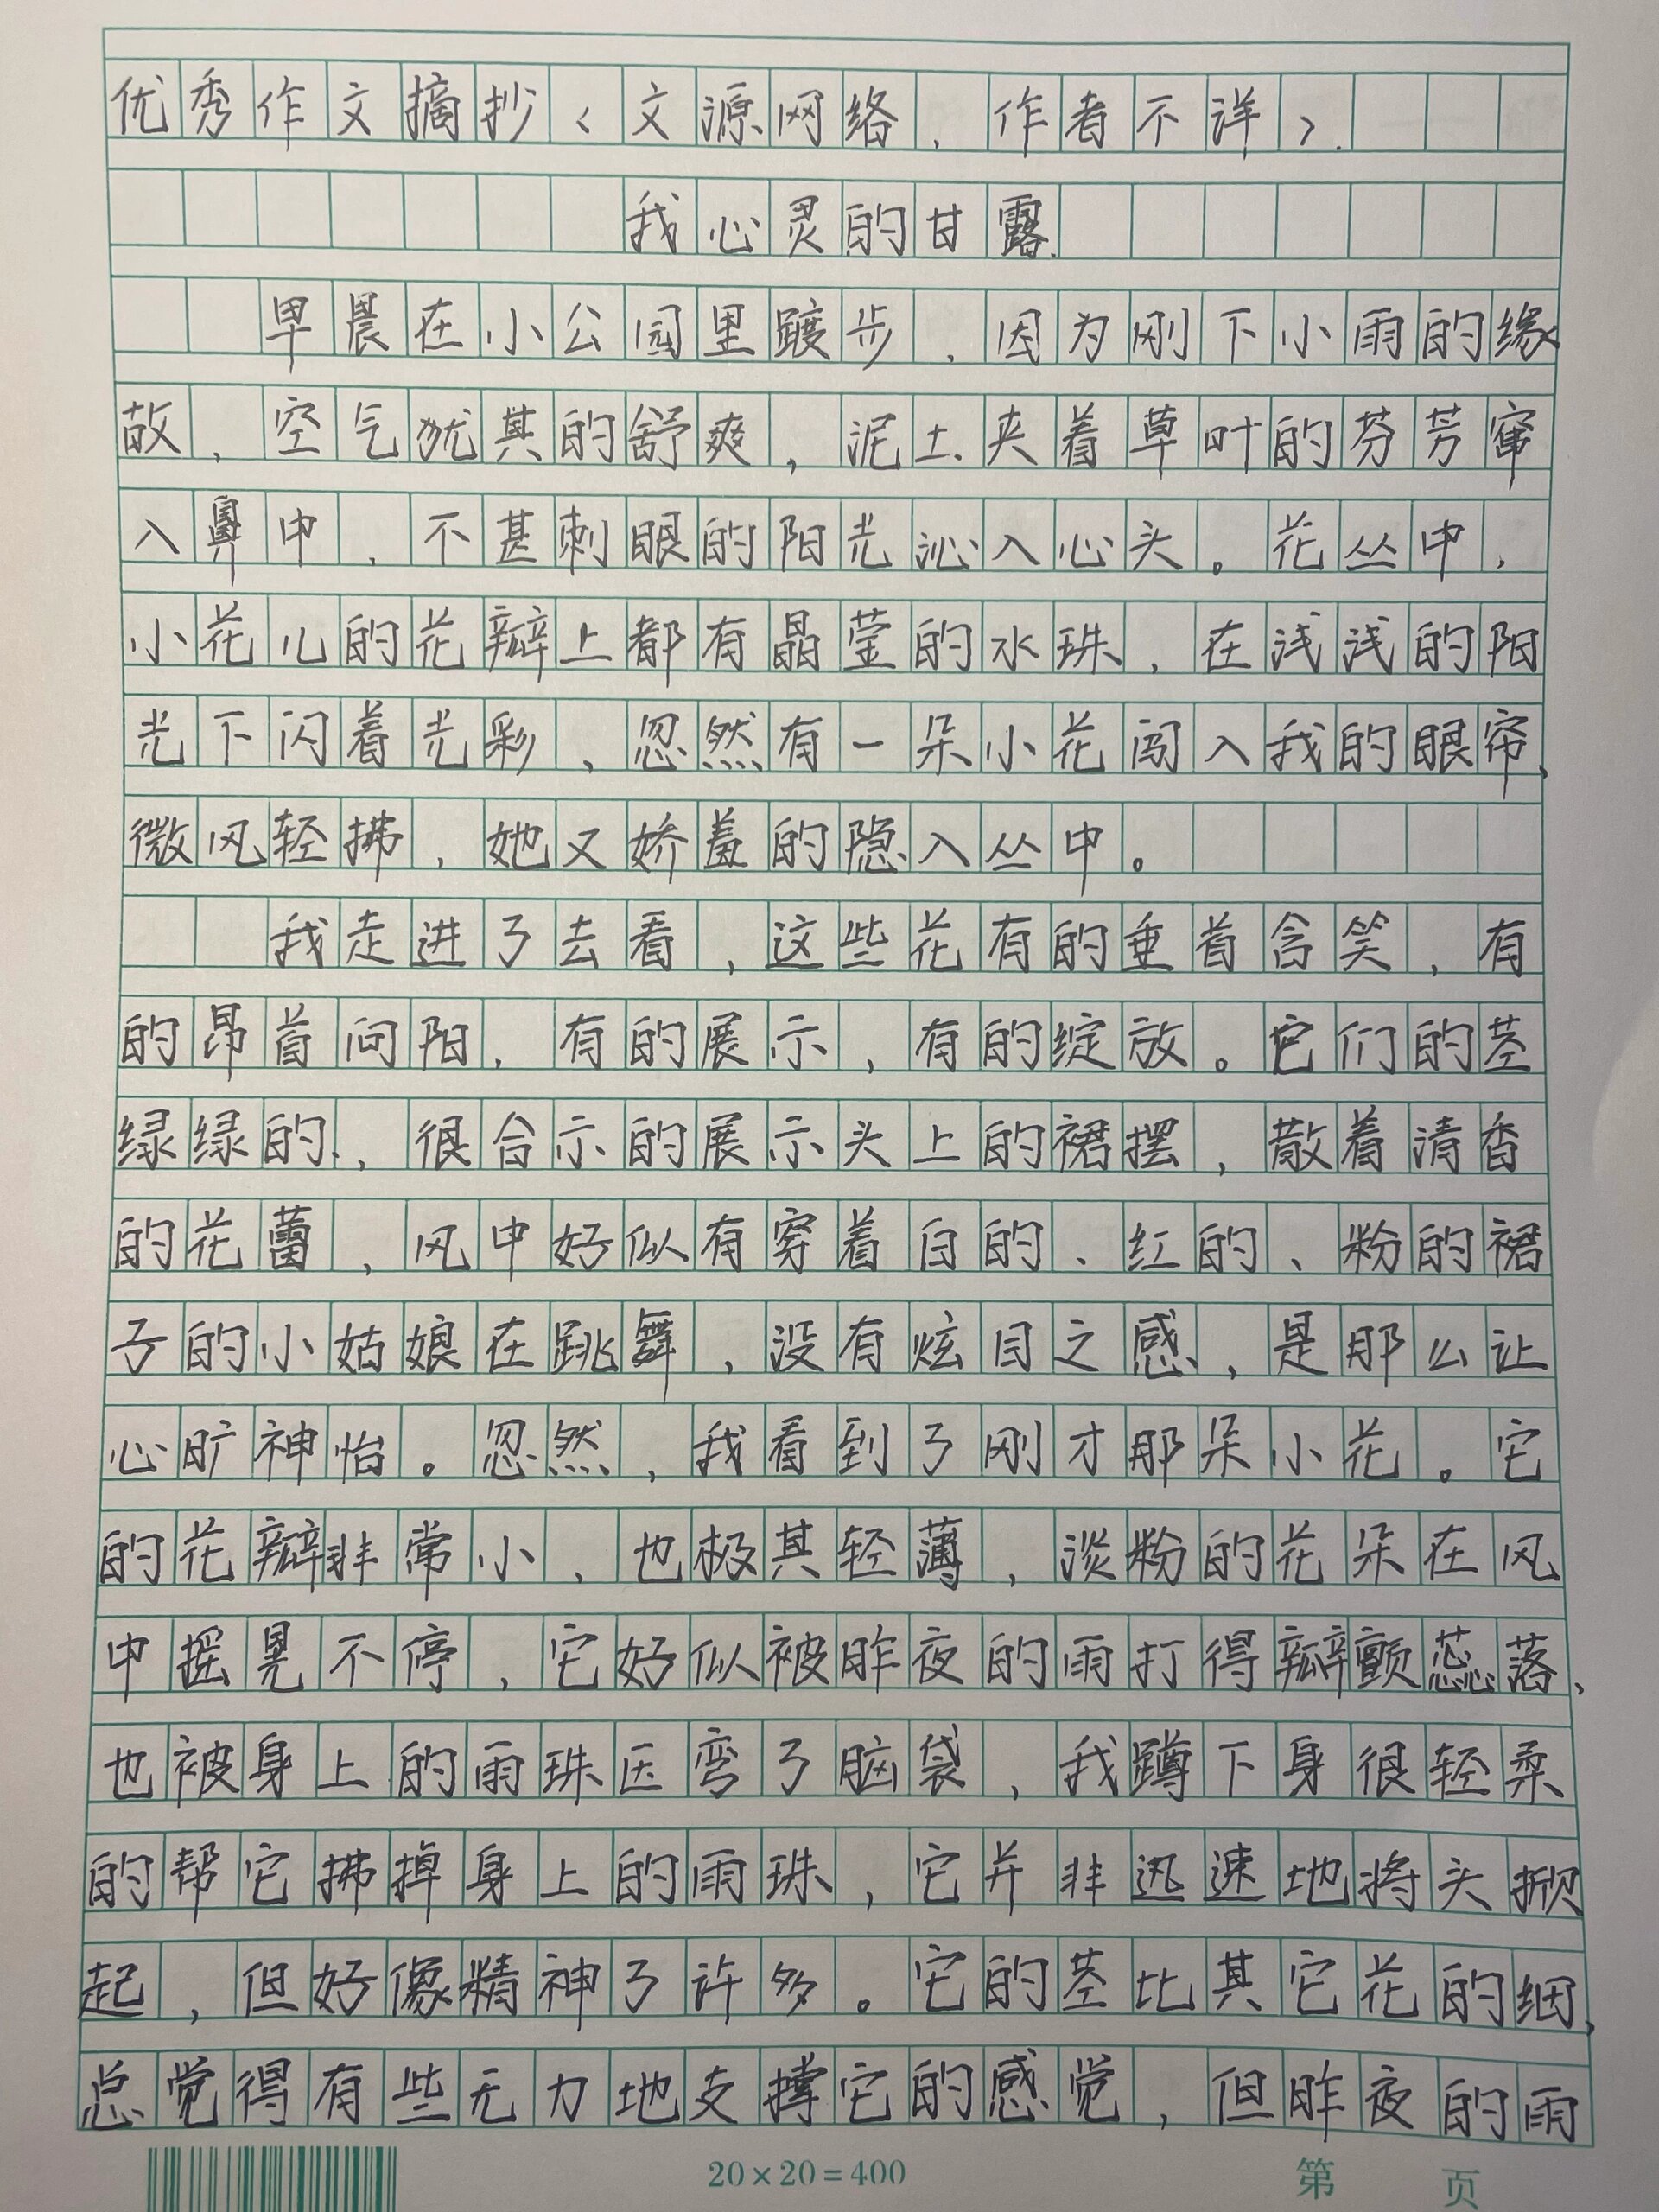 优秀作文摘抄<文源网络,作者不详>.
我心灵的甘露.
早晨在小公园里踱步,因为刚下小雨的缘
故,空气犹其的舒爽,泥土夹着草叶的芬芳窜
入鼻中,不甚刺眼的阳光沁入心头。花丛中,
小花儿的花瓣上都有晶莹的水珠,在浅浅的阳
光下闪着光彩、忽然有一朵小花闯入我的眼帘,
微风轻拂,她又娇羞的隐入丛中。
我走进了去看,这些花有的垂首含笑,有
的昂首问阳,有的展示,有的绽放。它们的茎
绿绿的,很合示的展示头上的裙摆,散着清香
的花蕾,风中好似有穿着白的、红的、粉的裙
子的小姑娘在跳舞,没有炫目之感,是那么让
心旷神怡。忽然,我看到了刚才那朵小花。它
的花瓣非常小、也极其轻薄,淡粉的花朵在风
中摇晃不停,它好似被昨夜的雨打得瓣颤蕊落、
也被身上的雨珠压弯了脑袋,我蹲下身很轻柔
的帮它拂掉身上的雨珠,它并非迅速地将头掀
起,但好像精神了许多。它的茎比其它花的细、
总觉得有些无力地支撑它的感觉,但昨夜的雨
20×20=400
第 页